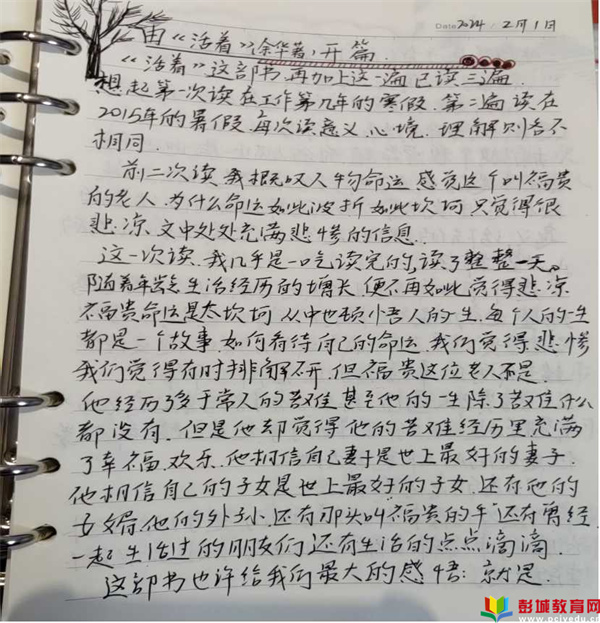 Date 2024 / 2月1日
由《活着》(余华著)开篇
《活着》这部书,再加上这一遍已读三遍.
想起第一次读在工作第几年的寒假.第二遍读在
2015年的暑假.每次读意义、心境、理解则各不
相同.
前二次读,我根叹人物命运,感觉这个叫福贵
的老人,为什么命运如此波折如此坎坷,只觉得很
悲凉,文中处处充满悲惨的信息.
这一次读,我几乎是一口吃读完的,读了整整一天。
随着年龄生活经历的增长,便不再如此觉得悲凉
福贵命运是太坎坷,从中也顿悟人的一生,每个人的一生
都是一个故事,如何看待自己的命运.我们觉得悲惨
我们觉得有时排解不开,但福贵这位老人不是.
他经历了多于常人的苦难,甚至他的一生除了苦难什么
都没有.但是他却觉得他的苦难经历里充满
了幸福、欢乐.他相信自己妻子是世上最好的妻子.
他相信自己的子女是世上最好的子女.还有他的
女婿,他的外孙,还有那头叫福贵的牛,还有曾经
一起生活过的朋友们,还有生活的点点滴滴.
这部书也许给我们最大的感悟:就是.
彭城教育网
www.pcjyedu.cn